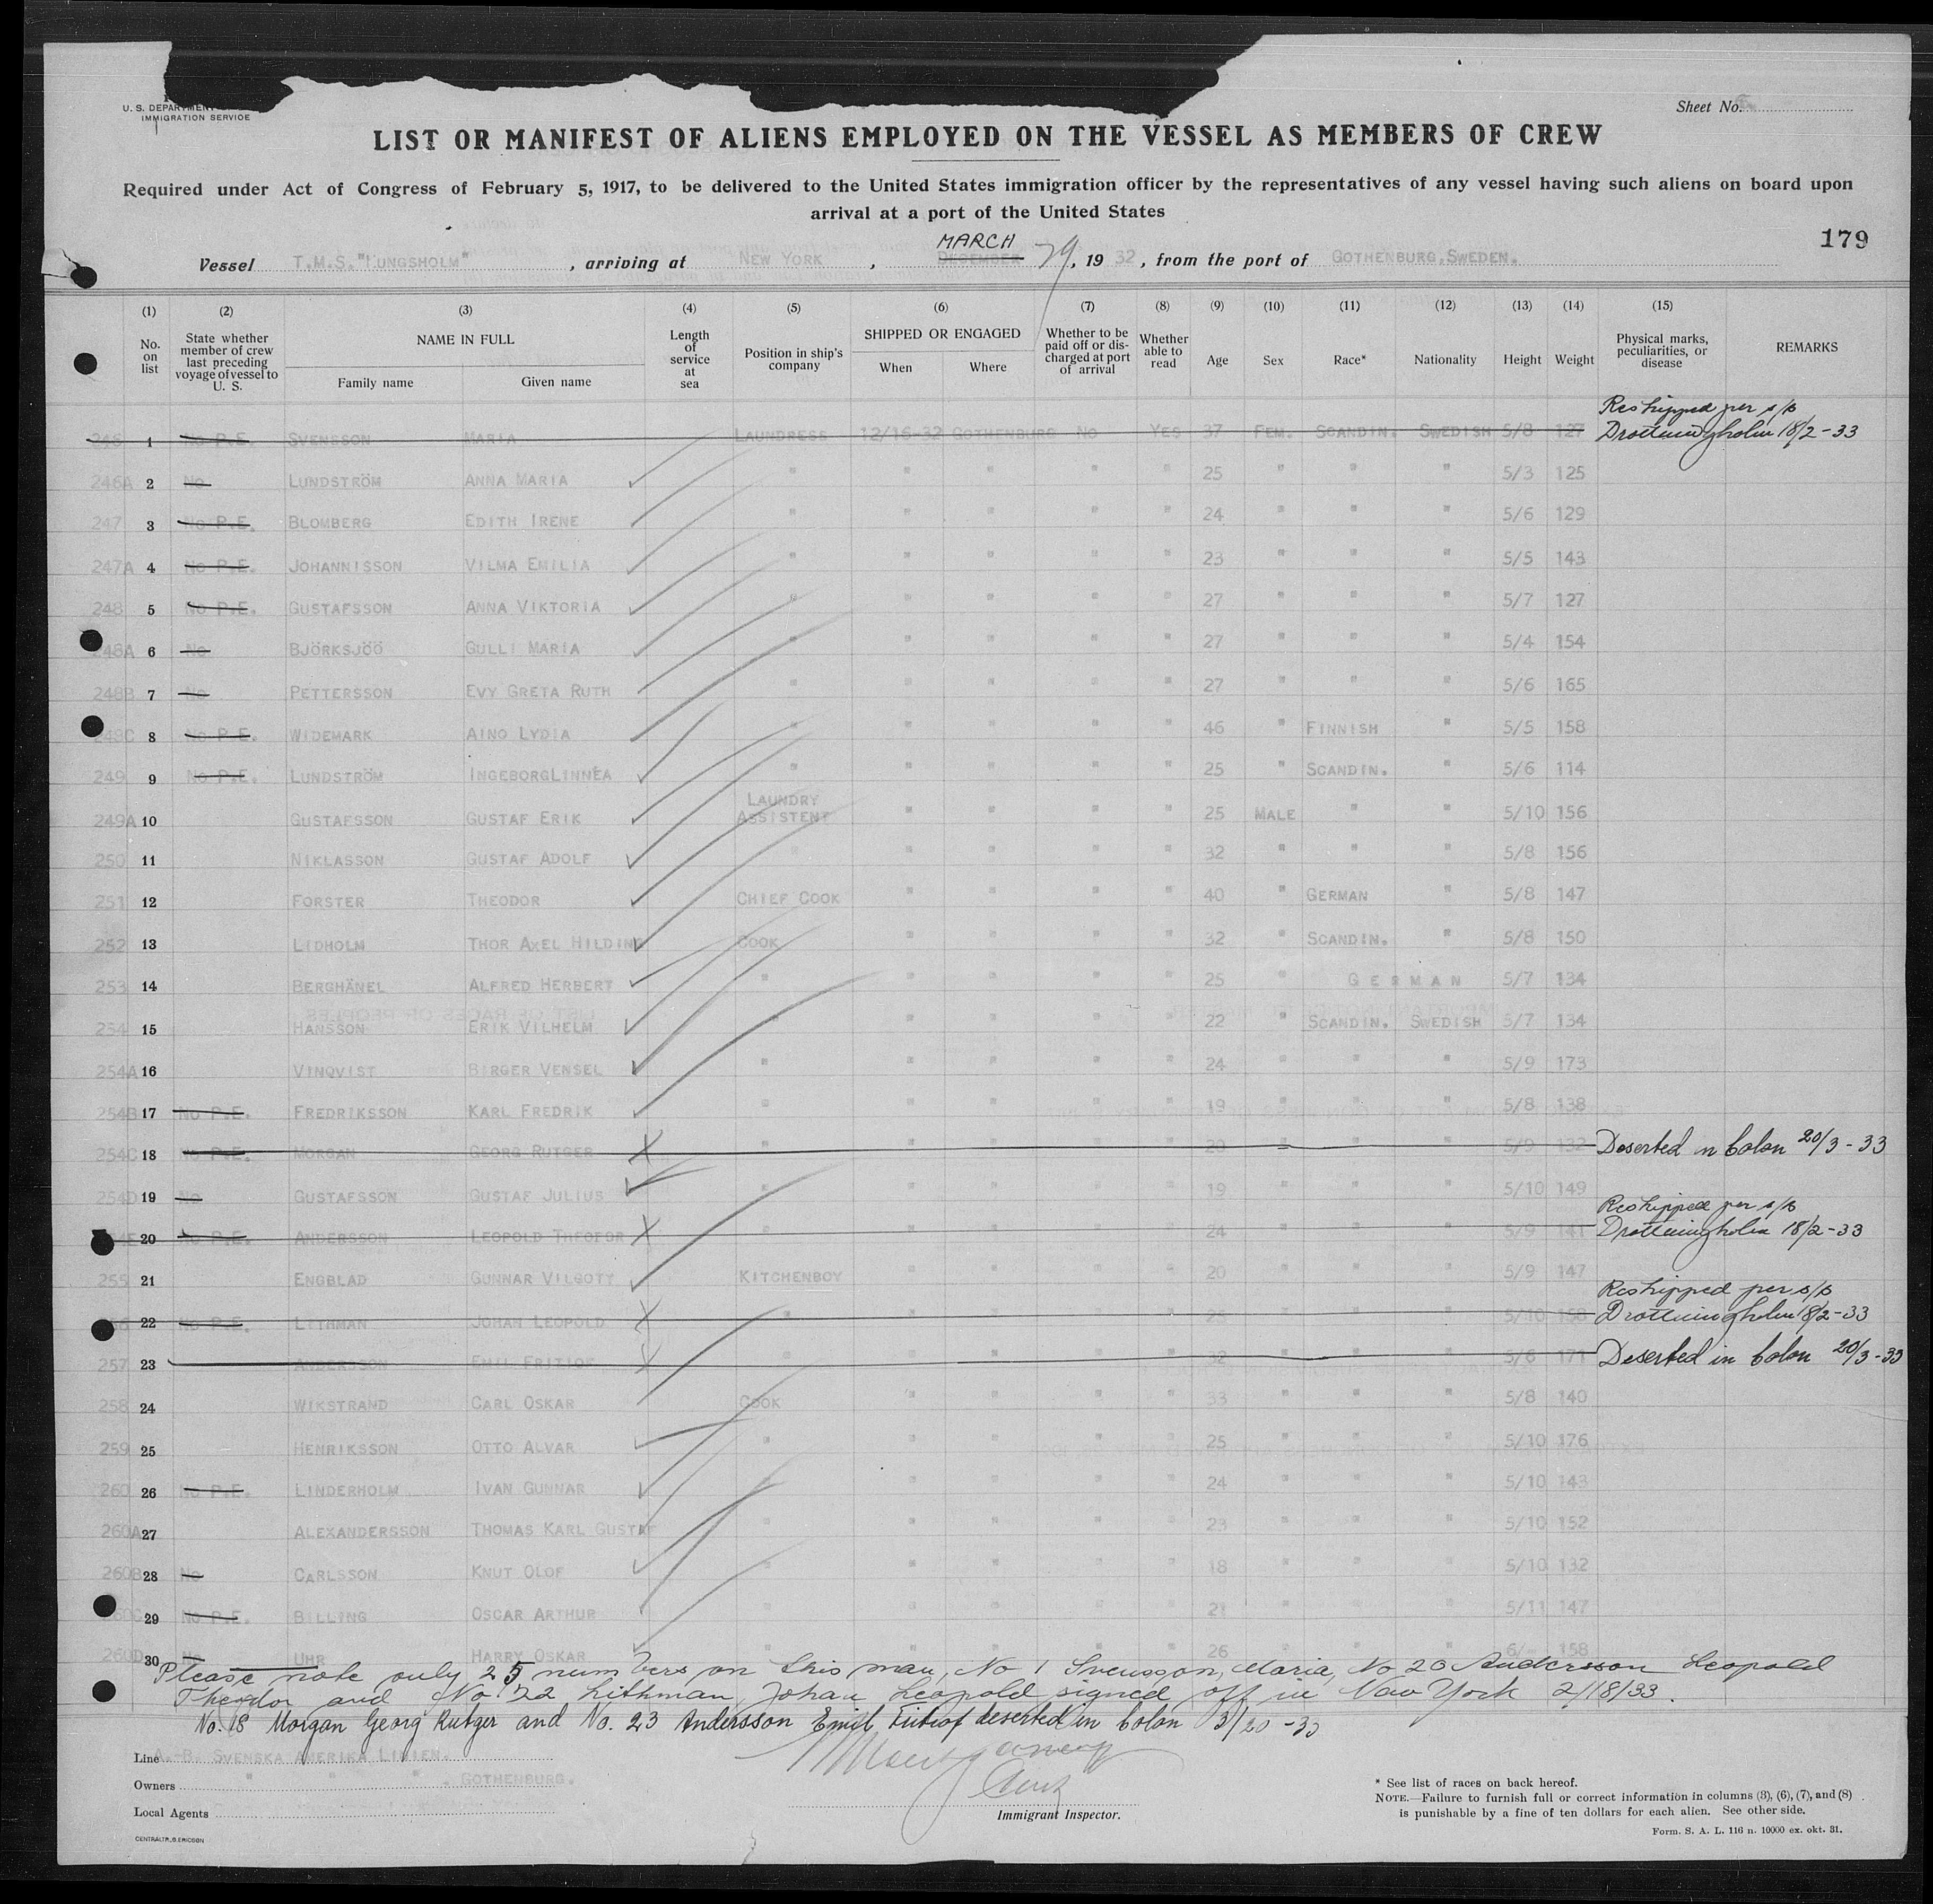 U. S. DEPARTMENT
IMMIGRATION SERVICE
Sheet No.
LIST OR MANIFEST OF ALIENS EMPLOYED ON THE VESSEL AS MEMBERS OF CREW
Required under Act of Congress of February 5, 1917, to be delivered to the United States immigration officer by the representatives of any vessel having such aliens on board upon
arrival at a port of the United States
179
MARCH
Vessel T.M.S."KUNGSHOLM", arriving at NEW YORK, DECEMBER 29, 1932, from the port of GOTHENBURG, SWEDEN.
(1) (2) (3) (4) (5) (6) (7) (8) (9) (10) (11) (12) (13) (14) (15)
No. on list
State whether member of crew last preceding voyage of vessel to U. S.
NAME IN FULL
Family name Given name
Length of service at sea
Position in ship's company
SHIPPED OR ENGAGED
When Where
Whether to be paid off or discharged at port of arrival
Whether able to read
Age Sex Race* Nationality Height Weight
Physical marks, peculiarities, or disease
REMARKS
Reshipped per s/s
246 1 No P.E. SVENSSON MARIA LAUNDRESS 12/16-32 GOTHENBURG NO YES 37 FEM. SCANDIN. SWEDISH 5/8 127 Drottningholm 18/2-33
246A 2 No LUNDSTRÖM ANNA MARIA " " " " " 25 " " " 5/3 125
247 3 No P.E. BLOMBERG EDITH IRENE " " " " " 24 " " " 5/6 129
247A 4 No P.E. JOHANNISSON VILMA EMILIA " " " " " 23 " " " 5/5 143
248 5 No P.E. GUSTAFSSON ANNA VIKTORIA " " " " " 27 " " " 5/7 127
248A 6 No BJÖRKSJÖÖ GULLI MARIA " " " " " 27 " " " 5/4 154
248B 7 No PETTERSSON EVY GRETA RUTH " " " " " 27 " " " 5/6 165
248C 8 No P.E. WIDEMARK AINO LYDIA " " " " " 46 " FINNISH " 5/5 158
249 9 No P.E. LUNDSTRÖM INGEBORG LINNÉA " " " " " 25 " SCANDIN. " 5/6 114
249A 10 GUSTAFSSON GUSTAF ERIK LAUNDRY ASSISTENT " " " " 25 MALE " " 5/10 156
250 11 NIKLASSON GUSTAF ADOLF " " " " " 32 " " " 5/8 156
251 12 FORSTER THEODOR CHIEF COOK " " " " 40 " GERMAN " 5/8 147
252 13 LIDHOLM THOR AXEL HILDING COOK " " " " 32 " SCANDIN. " 5/8 150
253 14 BERGHÄNEL ALFRED HERBERT " " " " " 25 " GERMAN 5/7 134
254 15 HANSSON ERIK VILHELM " " " " " 22 " SCANDIN. SWEDISH 5/7 134
254A 16 VINQVIST BIRGER VENSEL " " " " " 24 " " " 5/9 173
254B 17 No P.E. FREDRIKSSON KARL FREDRIK " " " " " 19 " " " 5/8 138
254C 18 No P.E. MORGAN GEORG RUTGER " " " " " 20 " " " 5/9 132 Deserted in Colon 20/3-33
254D 19 No GUSTAFSSON GUSTAF JULIUS " " " " " 19 " " " 5/10 149
Reshipped per s/s
254E 20 No P.E. ANDERSSON LEOPOLD THEODOR " " " " " 24 " " " 5/9 141 Drottningholm 18/2-33
255 21 ENGBLAD GUNNAR VILGOTT KITCHENBOY " " " " 20 " " " 5/9 147
Reshipped per s/s
256 22 No P.E. LITHMAN JOHAN LEOPOLD " " " " " 25 " " " 5/10 158 Drottningholm 18/2-33
257 23 ANDERSSON EMIL FRITIOF " " " " " 32 " " " 5/6 171 Deserted in Colon 20/3-33
258 24 WIKSTRAND CARL OSKAR COOK " " " " 33 " " " 5/8 140
259 25 HENRIKSSON OTTO ALVAR " " " " " 25 " " " 5/10 176
260 26 No P.E. LINDERHOLM IVAN GUNNAR " " " " " 24 " " " 5/10 143
260A 27 ALEXANDERSSON THOMAS KARL GUSTAF " " " " " 23 " " " 5/10 152
260B 28 No CARLSSON KNUT OLOF " " " " " 18 " " " 5/10 132
260C 29 No P.E. BILLING OSCAR ARTHUR " " " " " 21 " " " 5/11 147
260D 30 No UHR HARRY OSKAR " " " " " 26 " " " 6/- 158
Please note only 25 numbers on this man, No 1 Svensson, Maria, No 20 Andersson Leopold
Theodor and No 22 Lithman, Johan Leopold signed off in New York 2/18/33.
No. 18 Morgan Georg Rutger and No. 23 Andersson Emil Fritiof deserted in Colon 3/20-33
Line A.-B. SVENSKA AMERIKA LINIEN.
Owners " " " . GOTHENBURG.
Local Agents
Immigrant Inspector.
* See list of races on back hereof.
NOTE.—Failure to furnish full or correct information in columns (3), (6), (7), and (8)
is punishable by a fine of ten dollars for each alien. See other side.
CENTRALTR., G. ERICSON
Form. S. A. L. 116 n. 10000 ex. okt. 31.